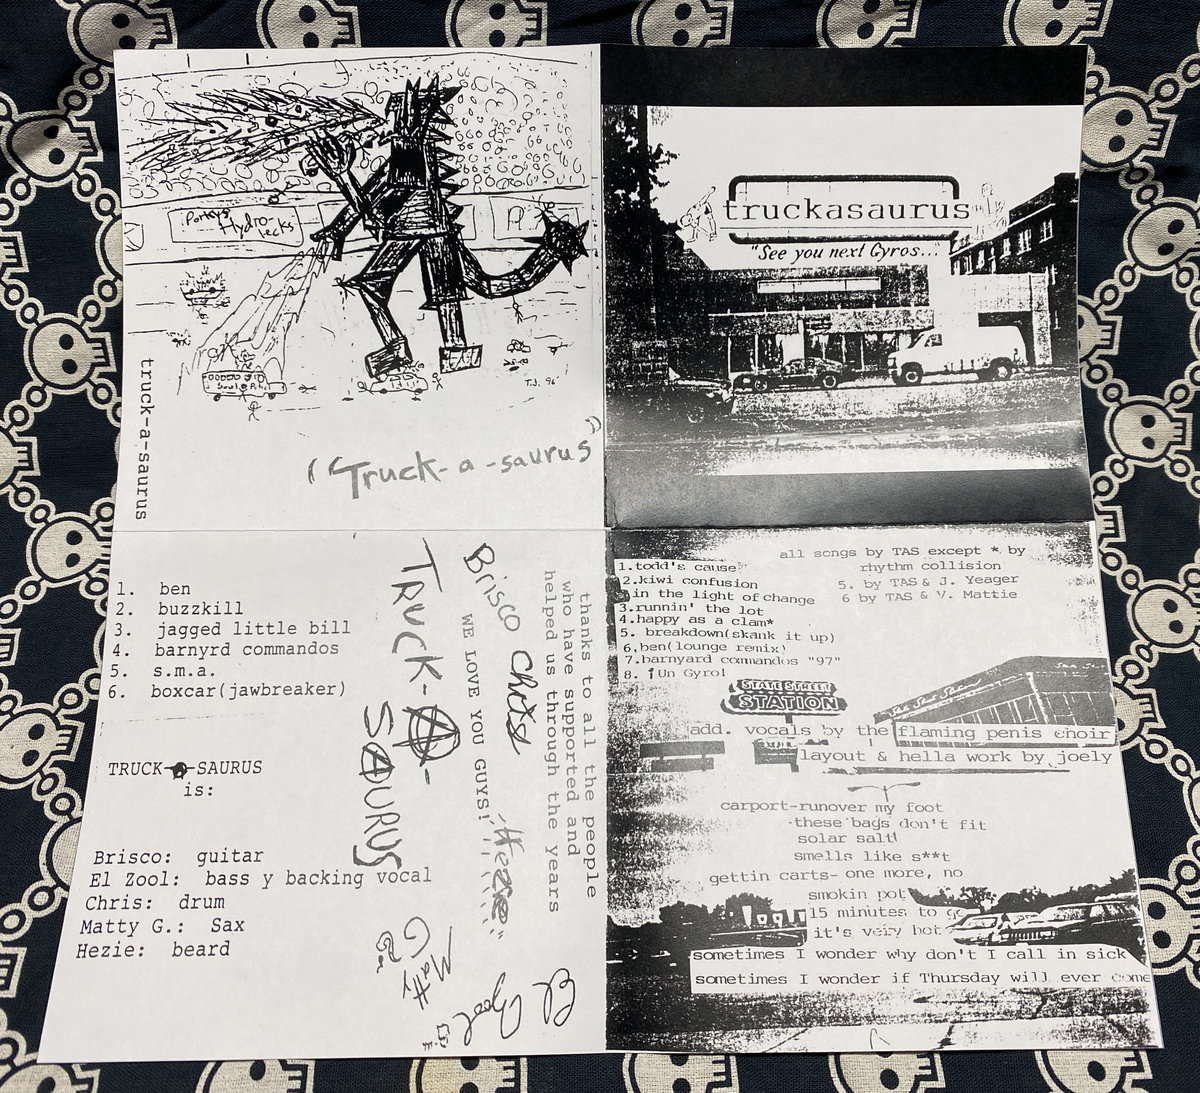 Porkys
Hydro-
Jecks
Soul
T.J. 96'
truck-a-saurus
"Truck-a-saurus"
truckasaurus
"See you next Gyros...
1. ben
2. buzzkill
3. jagged little bill
4. barnyrd commandos
5. s.m.a.
6. boxcar(jawbreaker)
TRUCK-A-SAURUS
is:
Brisco: guitar
El Zool: bass y backing vocal
Chris: drum
Matty G.: Sax
Hezie: beard
TRUCK-A-
SAURUS
Brisco
Chris
WE LOVE YOU GUYS!
Hezie
Matty
G
El Zool
thanks to all the people
who have supported and
helped us through the years
all songs by TAS except * by
rhythm collision
5. by TAS & J. Yeager
6 by TAS & V. Mattie
1.todd's cause
2.kiwi confusion
in the light of change
3.runnin' the lot
4.happy as a clam*
5. breakdown(skank it up)
6.ben(lounge remix)
7.barnyard commandos "97"
8. ¡Un Gyro!
STATE STREET
STATION
add. vocals by the flaming penis choir
layout & hella work by joely
carport-runover my foot
-these bags don't fit
solar salt!
smells like s**t
gettin carts- one more, no
smokin pot
15 minutes to go
it's very hot
sometimes I wonder why don't I call in sick
sometimes I wonder if Thursday will ever come